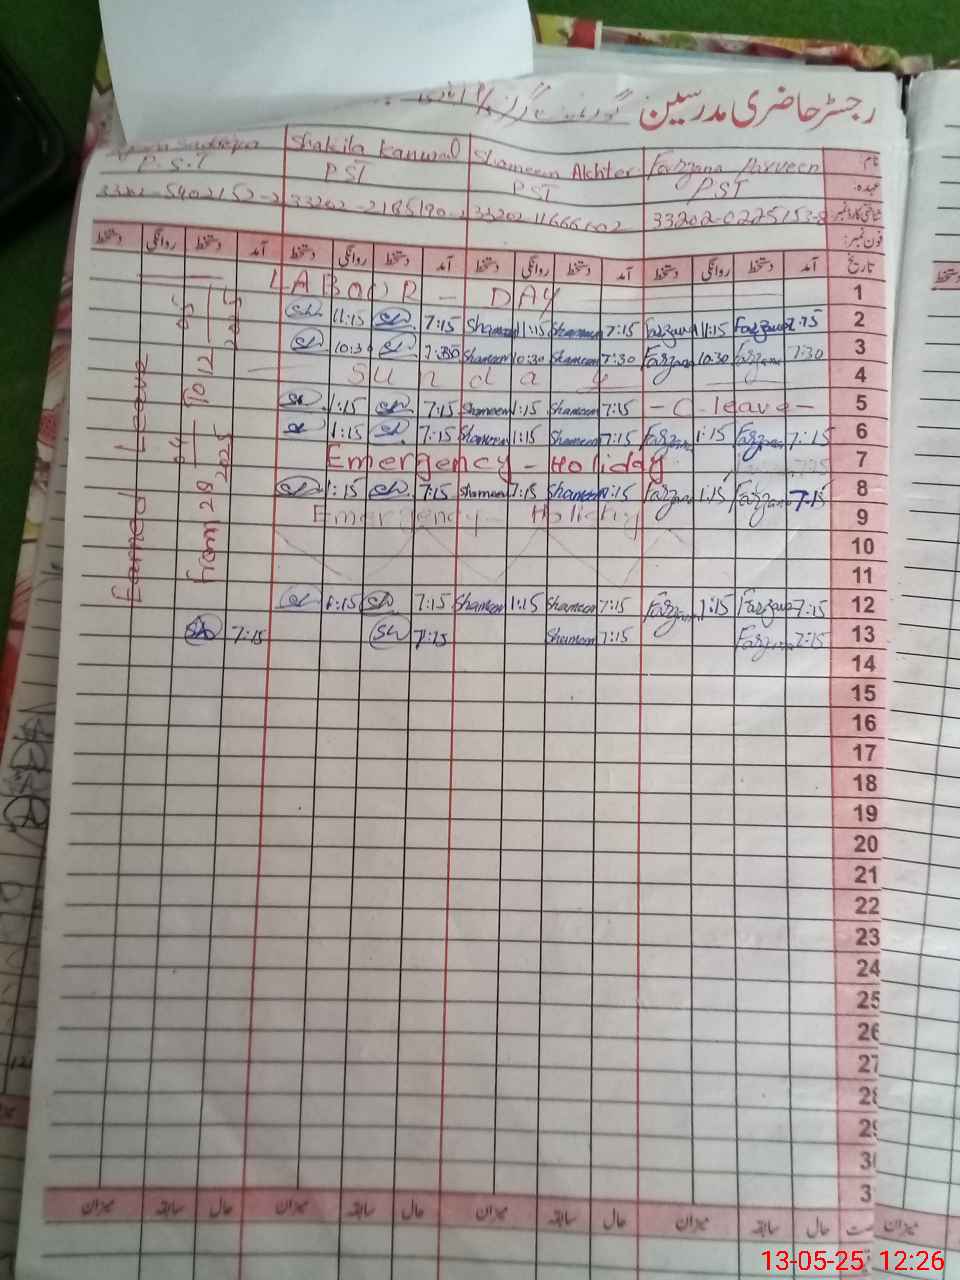 رجسٹر حاضری مدرسین
نام: Farzana Parveen Shameem Akhter Shakila Kanwal
عہدہ: PST PST PST P.S.T
شناختی کارڈ نمبر: 33202-0225153-8
فون نمبر:
تاریخ آمد دستخط روانگی دستخط آمد دستخط روانگی دستخط آمد دستخط روانگی دستخط آمد دستخط روانگی دستخط
1 LABOUR - DAY
2 7:15 Farzana 11:15 Farzana 7:15 Shameem 11:15 Shameem 7:15 11:15
3 7:30 Farzana 10:30 Farzana 7:30 Shameem 10:30 Shameem 7:30 10:30
4 Sunday
5 - C-leave - 7:15 Shameem 1:15 Shameem 7:15 1:15
6 7:15 Farzana 1:15 Farzana 7:15 Shameem 1:15 Shameem 7:15 1:15
7 Emergency - Holiday
8 7:15 Farzana 1:15 Farzana 7:15 Shameem 1:15 Shameem 7:15 1:15
9 Emergency Holiday
10
11
12 7:15 Farzana 1:15 Farzana 7:15 Shameem 1:15 Shameem 7:15 1:15
13 7:15 Farzana 7:15 Shameem 7:15 7:15
Earned Leave
from 28-04-2025 to 12-05-2025
14
15
16
17
18
19
20
21
22
23
24
25
26
27
28
29
30
حال سابقہ میزان حال سابقہ میزان حال سابقہ میزان حال سابقہ میزان
میزان
13-05-25 12:26